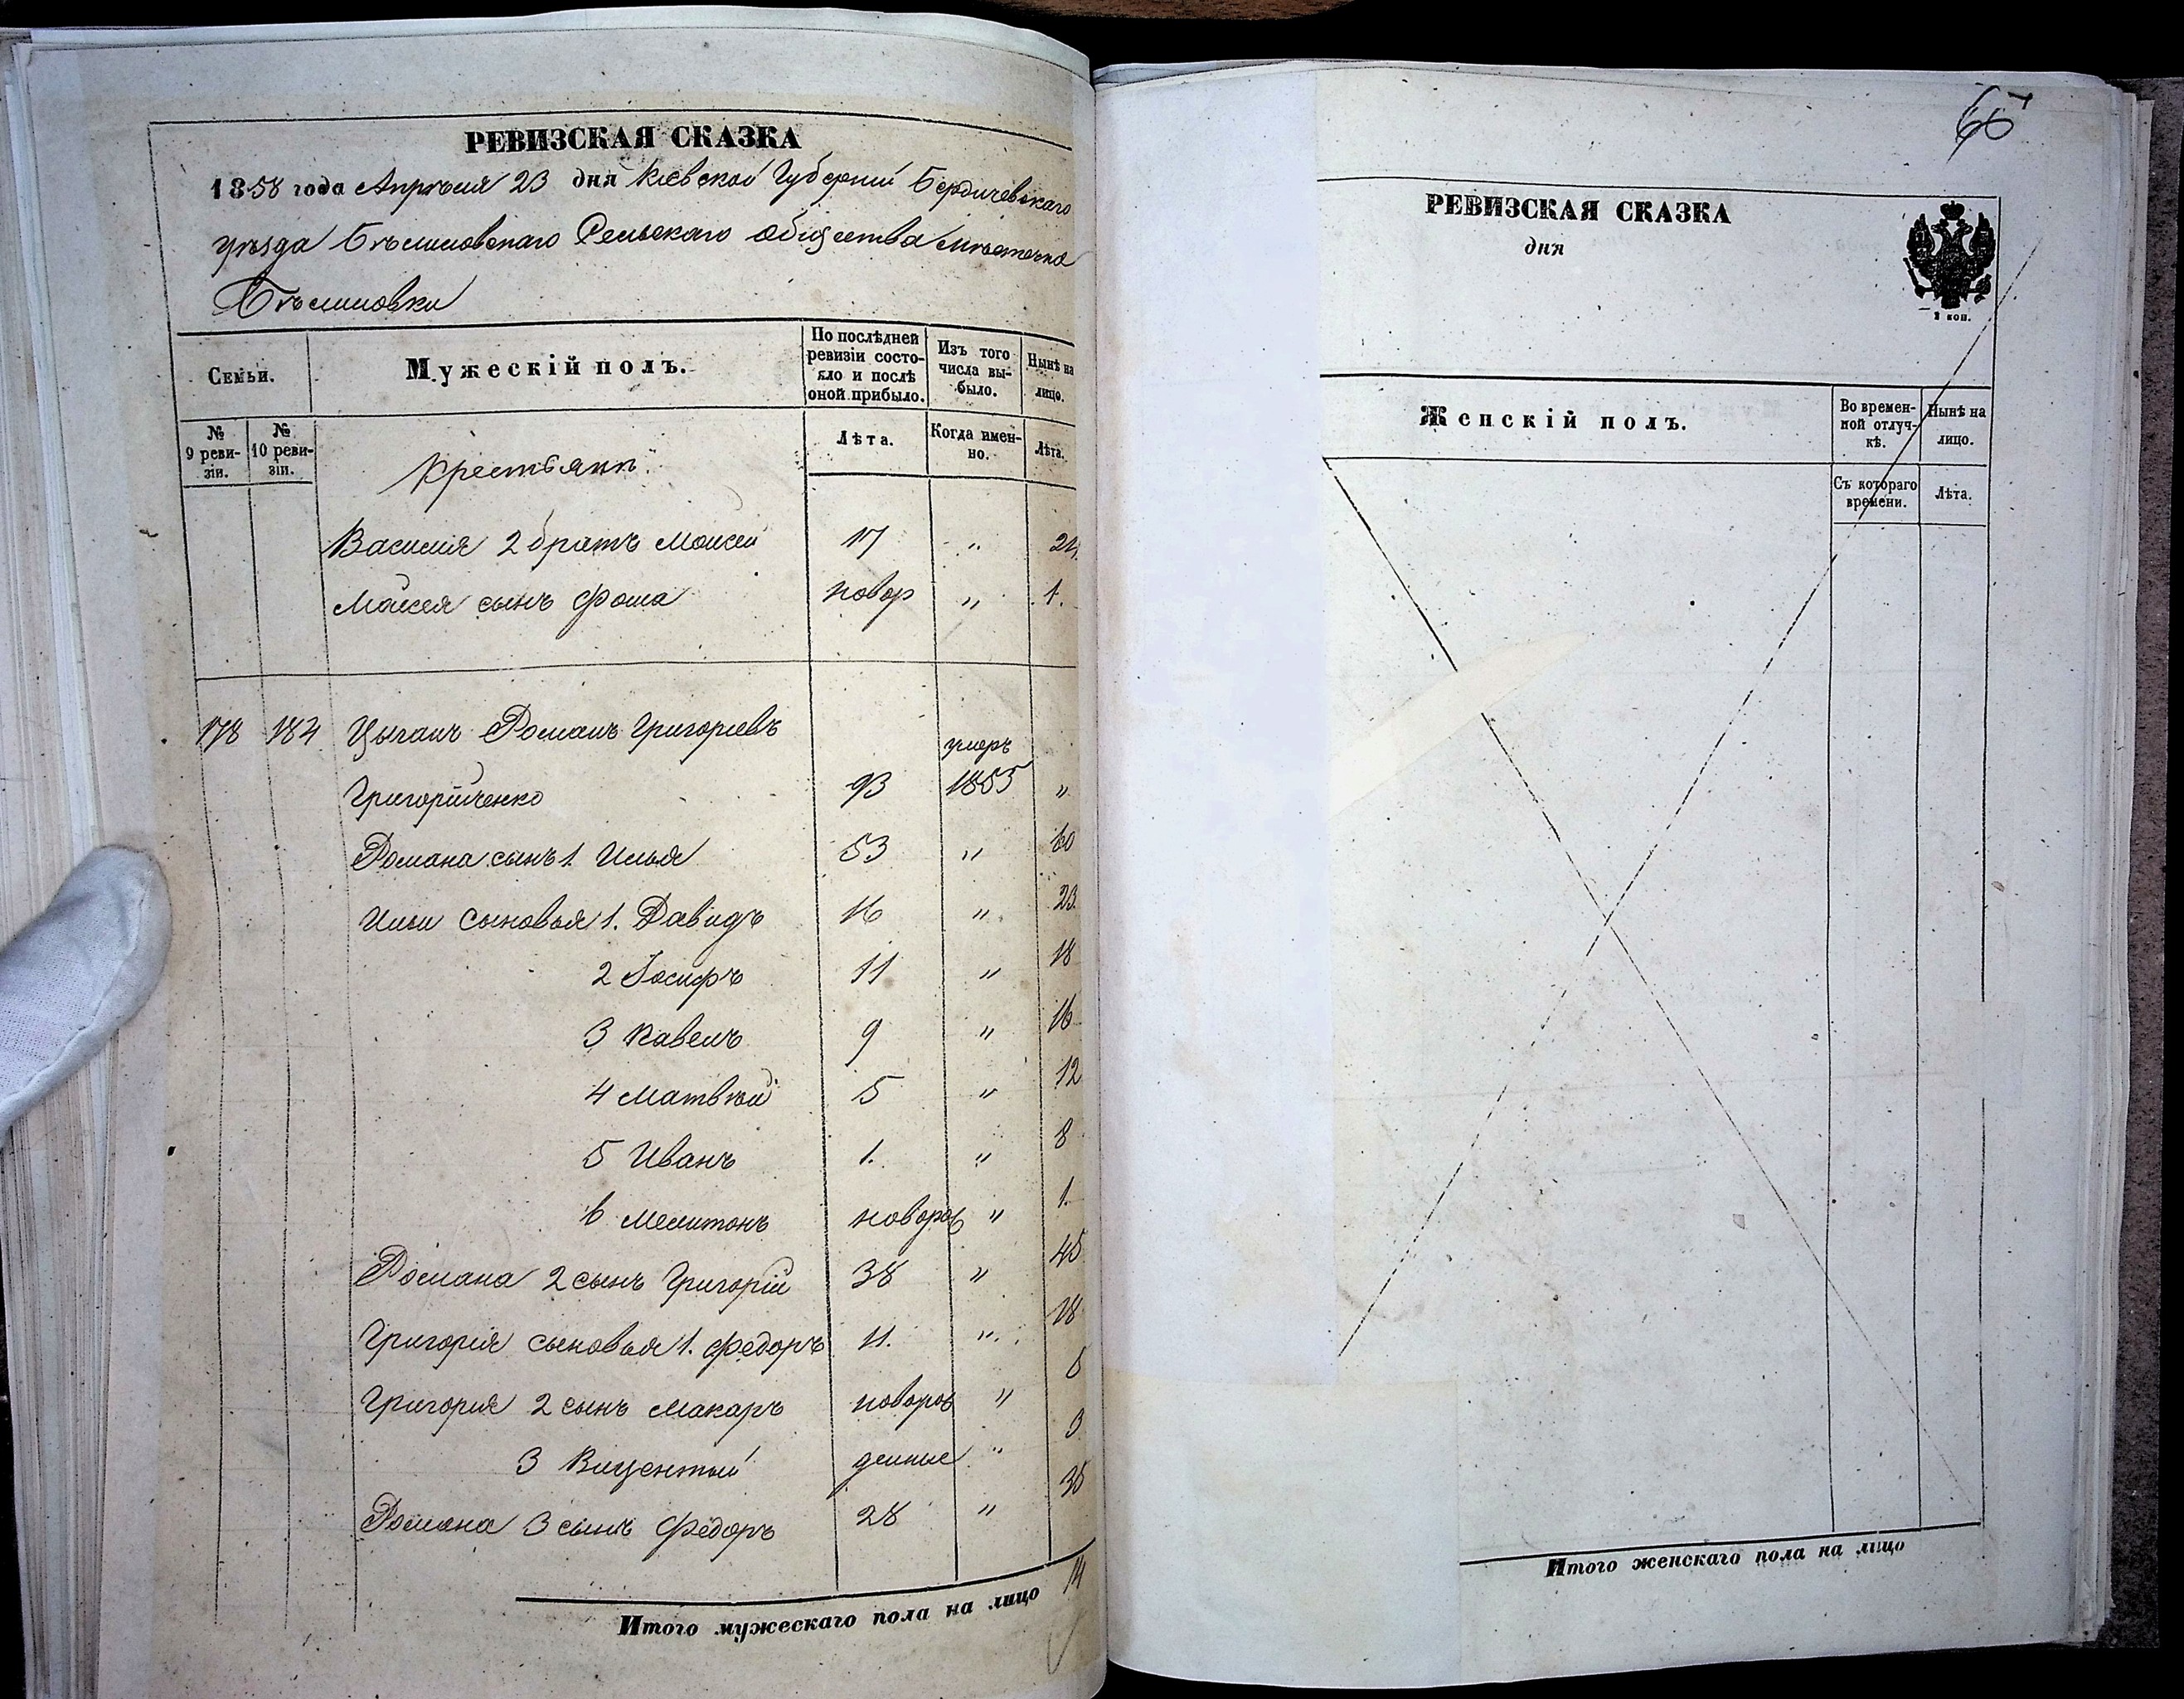 РЕВИЗСКАЯ СКАЗКА
1858 года Апрѣля 23 дня Кіевской Губерніи Бердичевскаго
уѣзда Бѣлиловскаго Сельскаго Общества Мѣстечка
Бѣлиловки
Семьи.
Мужескій полъ.
По послѣдней ревизіи состояло и послѣ оной прибыло.
Изъ того числа выбыло.
Нынѣ на лицо.
№ 9 ревизіи.
№ 10 ревизіи.
Крестьянъ
Лѣта.
Когда именно.
Лѣта.
Василія 2 братъ Моисей 17 " 24
Моисея сынъ Фома новор " 1.
178 184 Цыганъ Романъ Григорьевъ
умеръ
Григорійченко 93 1855 "
Романа сынъ 1 Илья 53 " 60
Ильи сыновья 1. Давидъ 16 " 23
2 Іосифъ 11 " 18
3 Павелъ 9 " 16
4 Матвѣй 5 " 12
5 Иванъ 1. " 8
6 Мелитонъ новорож " 1.
Романа 2 сынъ Григорій 38 " 45
Григорія сыновья 1. Федоръ 11. " 18
Григорія 2 сынъ Макаръ новорож "
3 Викентій денные " 3
Романа 3 сынъ Федоръ 28 " 35
Итого мужескаго пола на лицо 14
РЕВИЗСКАЯ СКАЗКА
дня
Женскій полъ.
Во временной отлучкѣ.
Нынѣ на лицо.
Съ котораго времени.
Лѣта.
Итого женскаго пола на лицо